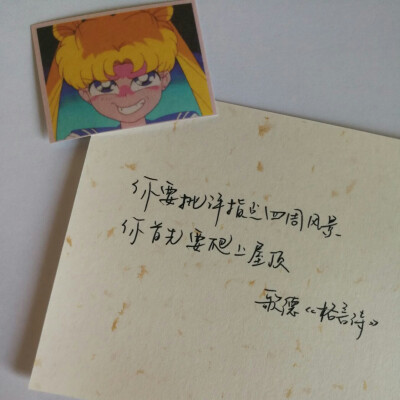 你要批评指点四周风景
你首先要爬上屋顶
歌德《格言诗》